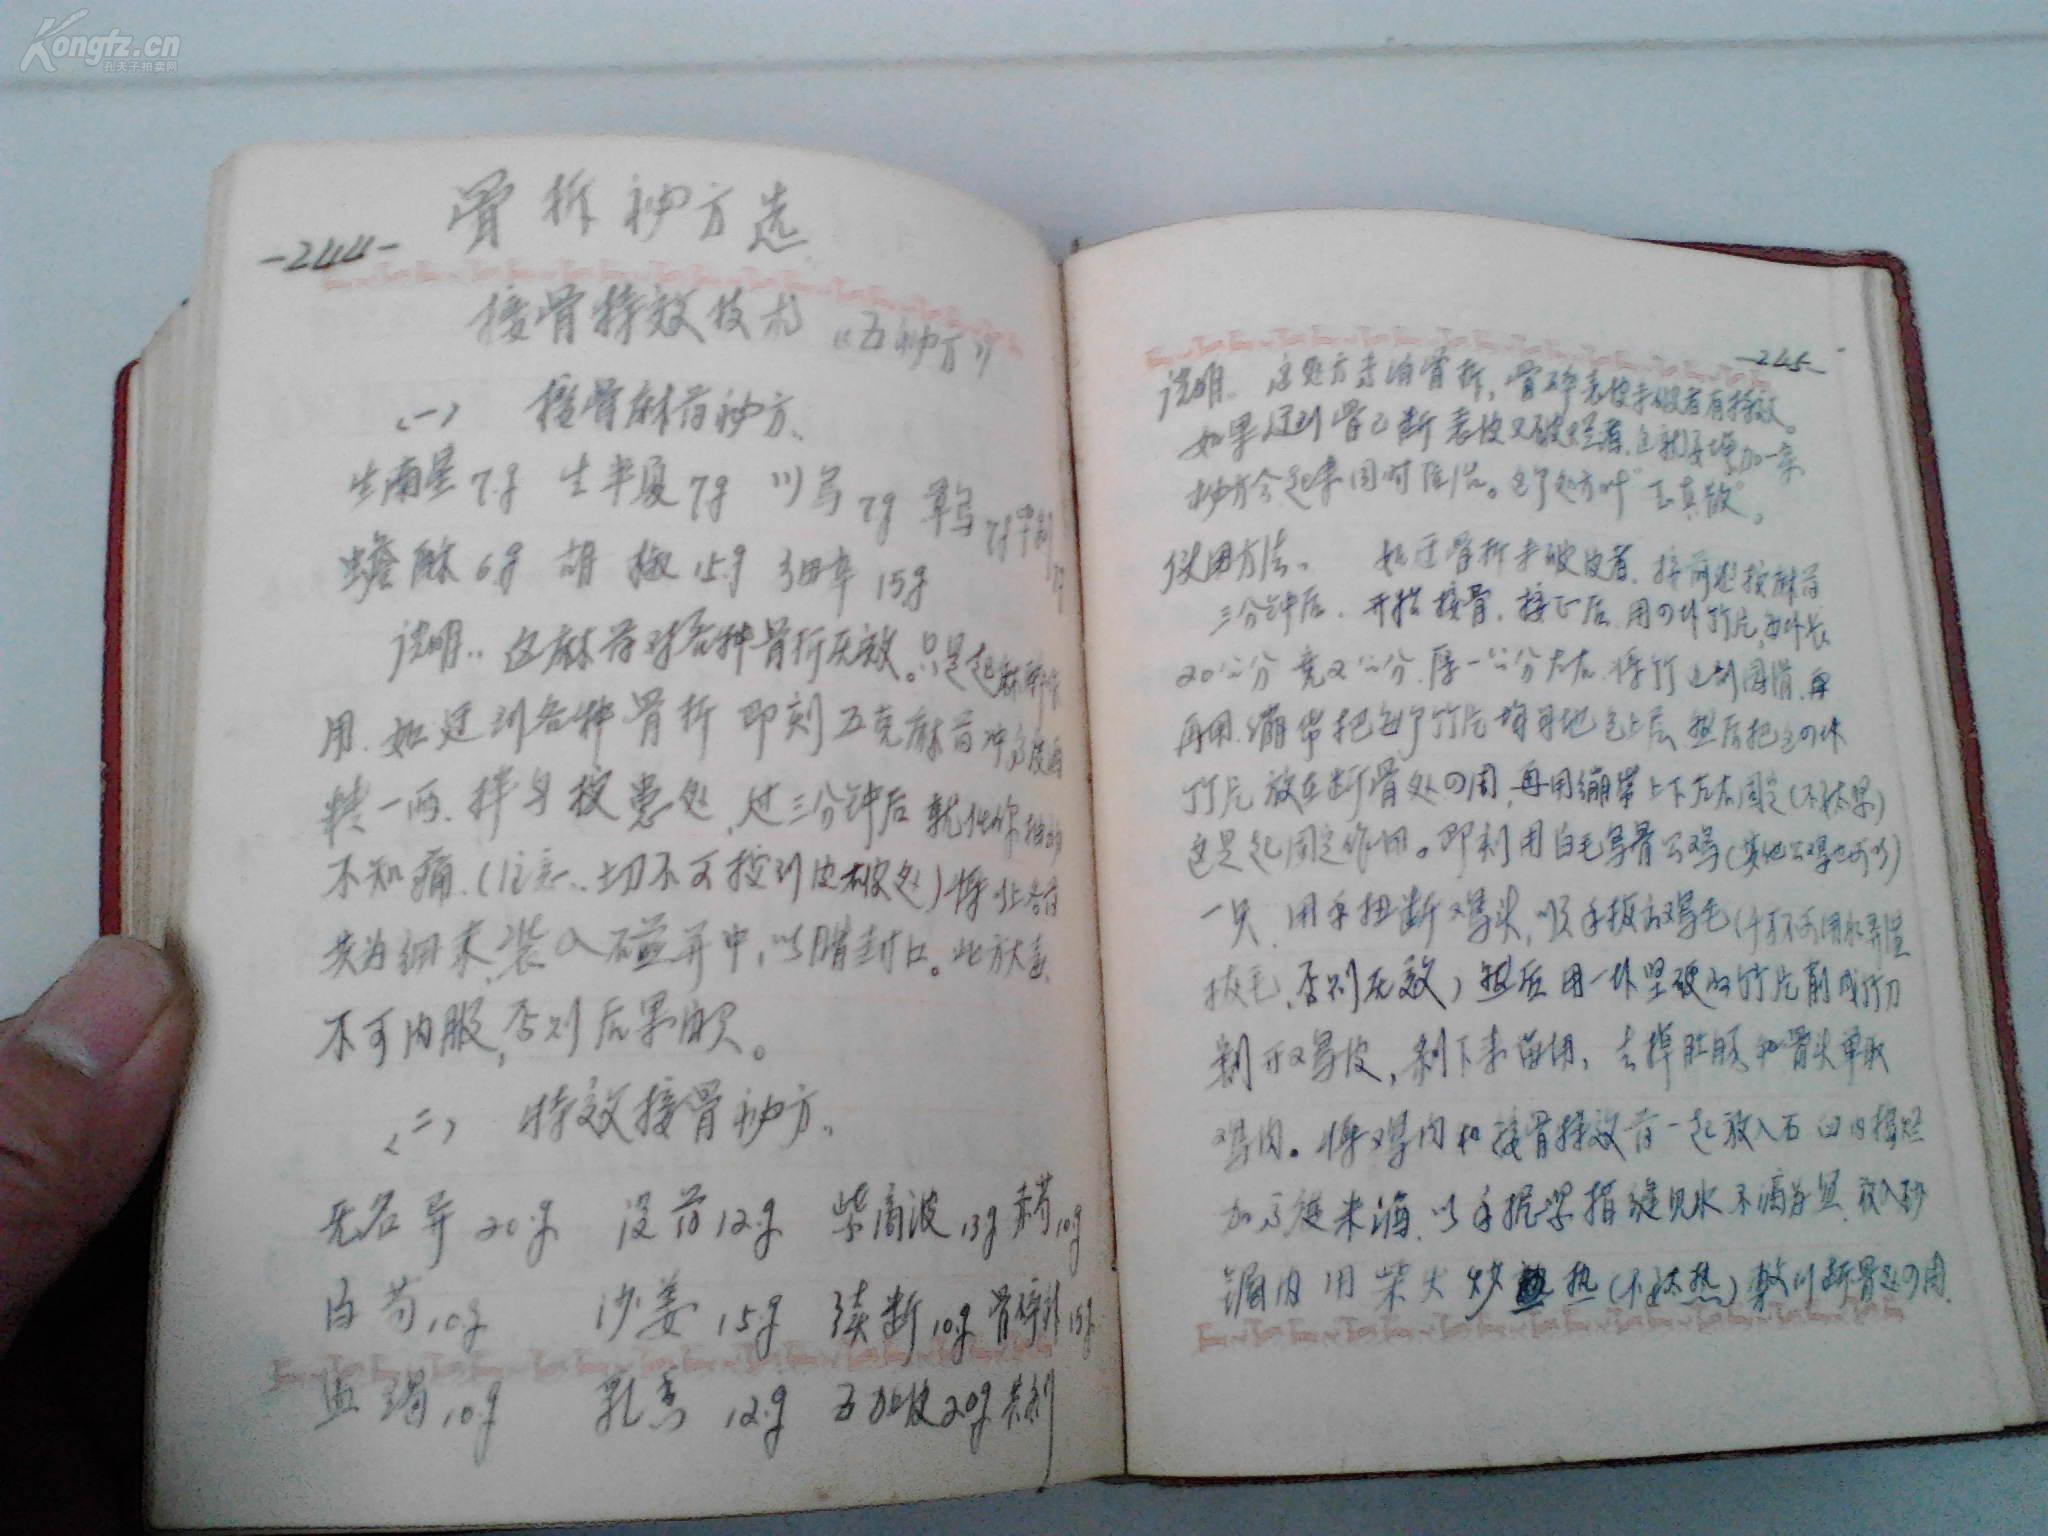 Kongfz.cn
孔夫子拍卖网
骨折秘方选
-244-
接骨特效技术 《五秘方》
(一) 接骨麻药秘方
生南星 7g 生半夏 7g 川乌 7g 草乌 7g
蟾酥 6g 胡椒 15g 细辛 15g
说明：这麻药对各种骨折无效。只是起麻醉作
用，如遇到各种骨折即刻五克麻药冲
一两，拌匀按患处，过三分钟后就
不知痛（注意：切不可按到皮破处）将以上各药
共为细末，装入磁并中，以腊封口。此方大毒
不可内服，否则后果
(二) 特效接骨秘方
无名异 20g 没药 12g 柴 13g 赤芍 10g
白芍 10g 沙姜 15g 续断 10g 骨碎补 15g
血竭 10g 乳香 12g 五加皮 20g 共制
-245-
说明。这处方专治骨折，骨碎表皮未破者有特效。
如果遇到骨已断表皮又破烂者，这就要增加一条
秘方合起来同时医治。这个处方叫“玉真散”。
使用方法。如过骨折未破皮者，接前先按麻药
三分钟后，开始接骨，接正后，用四块竹片，每块长
20公分 宽2公分，厚一公分左右，将竹边刮圆滑，再
再用绷带把这个竹片均匀地包上层，然后把这四块
竹片放在断骨处四周，再用绷带上下左右固定（不
这是起固定作用。即刻用白毛乌骨公鸡（其他公鸡也可以）
一只，用手扭断鸡头，顺手拔去鸡毛（千万不可用水弄湿
拔毛，否则无效）然后用一块坚硬的竹片削成竹刀
剥开鸡皮，剥下来备用，去掉肚肠和骨头单取
鸡肉。将鸡肉和接骨特效药一起放入石臼内捣烂
加 米酒，以手握 指缝见水不滴为宜，放入砂
锅内用柴火炒热（不 太热）敷到断骨处四周